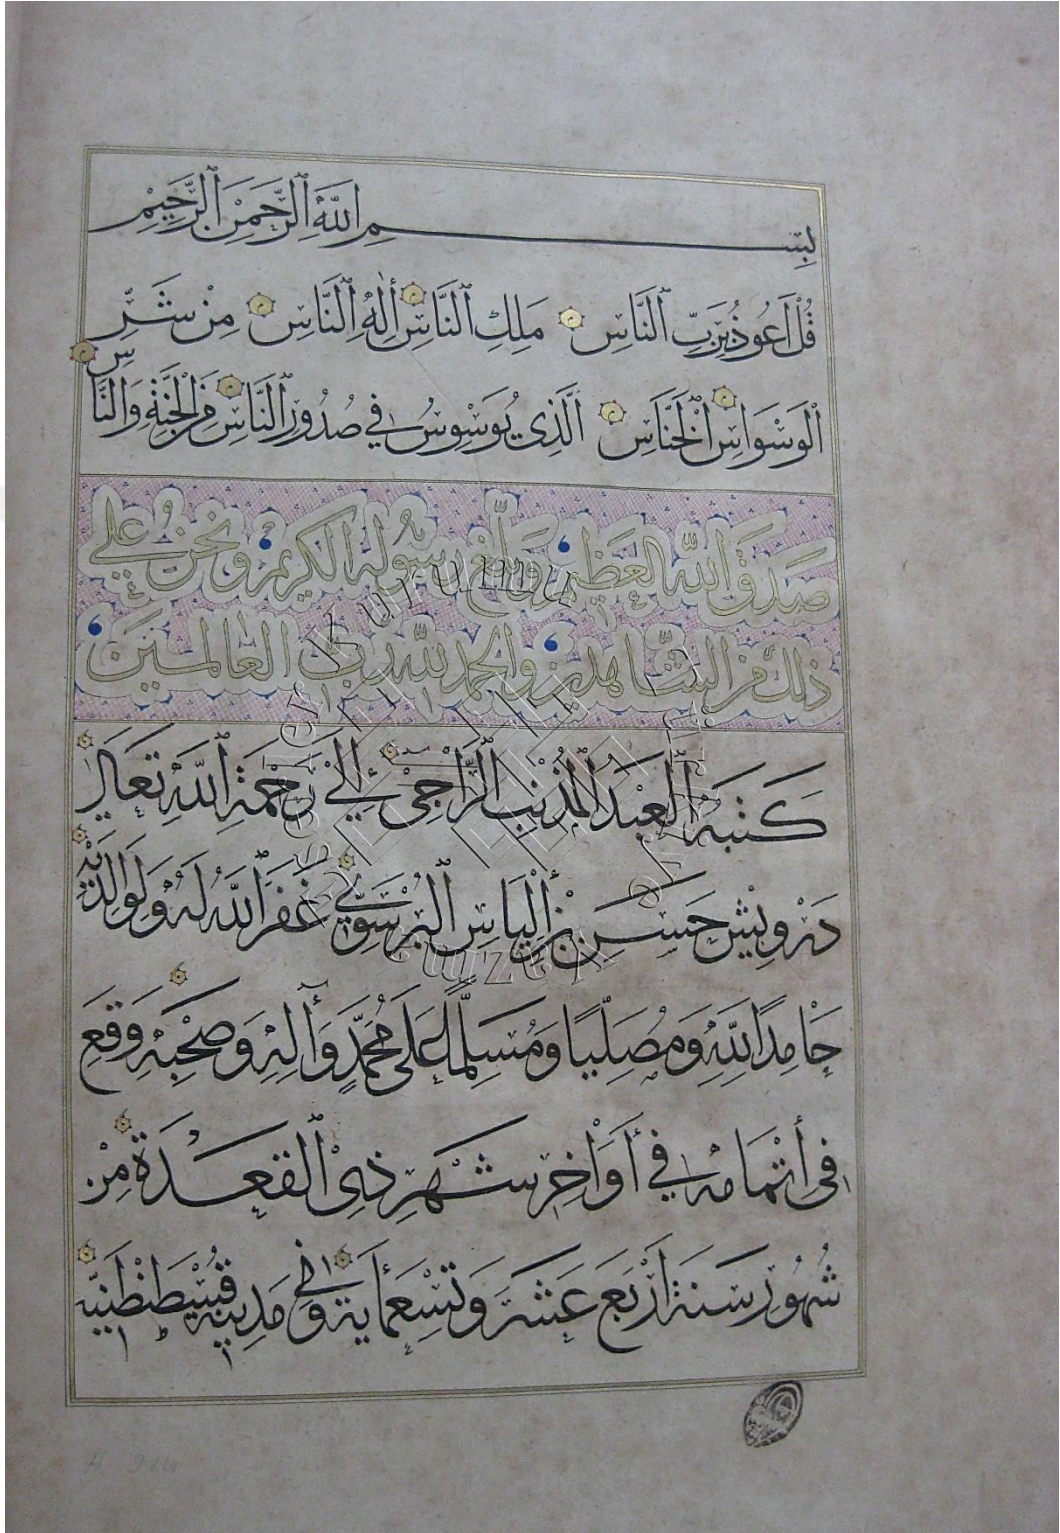 بِسْمِ اللَّهِ الرَّحْمَنِ الرَّحِيمِ
قُلْ أَعُوذُ بِرَبِّ النَّاسِ مَلِكِ النَّاسِ إِلَهِ النَّاسِ مِنْ شَرِّ
الْوَسْوَاسِ الْخَنَّاسِ الَّذِي يُوَسْوِسُ فِي صُدُورِ النَّاسِ مِنَ الْجِنَّةِ وَالنَّاسِ
صدق الله العظيم وبلغ رسوله الكريم ونحن على
ذلك من الشاهدين والحمد لله رب العالمين
كتبه العبد المذنب الراجي إلى رحمة الله تعالى
درويش حسن بن إلياس البرسوي غفر الله له ولوالديه
حامدًا لله ومصليًا ومسلمًا على محمد وآله وصحبه وقع
في إتمامه في أواخر شهر ذي القعدة من
شهور سنة أربع عشر وتسعماية وفي مدينة قسطنطنية